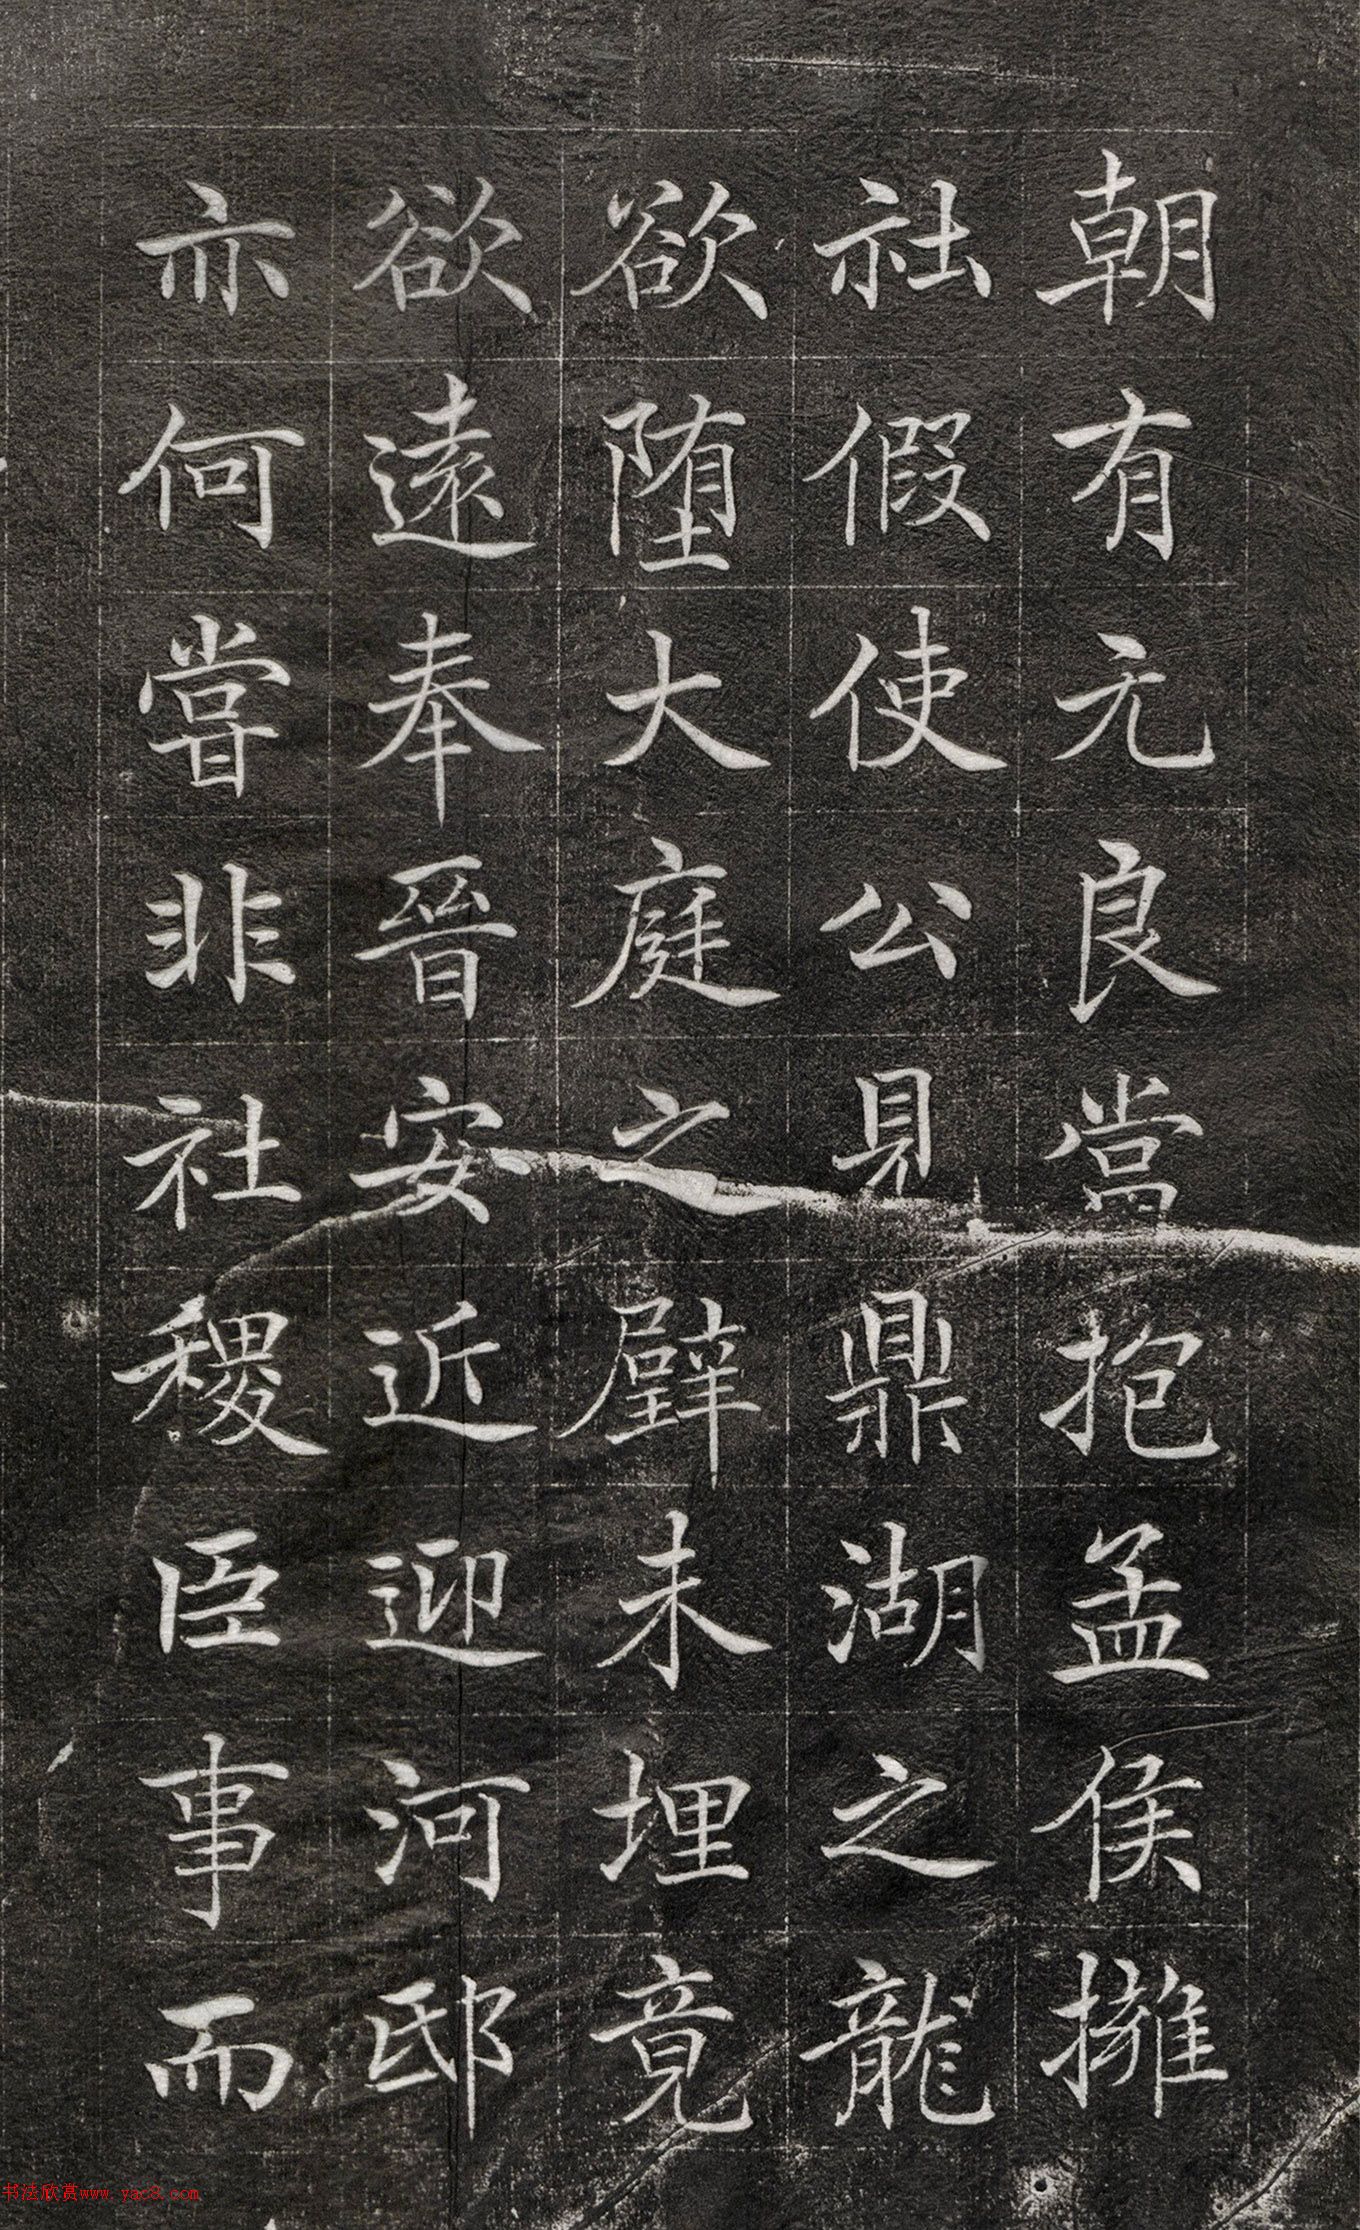 朝有元良當抱孟侯擁
社假使公見鼎湖之龍
欲堕大庭之璧未埋竟
欲遠奉晉安近迎河邸
亦何嘗非社稷臣事而
书法欣赏www.yac8.com